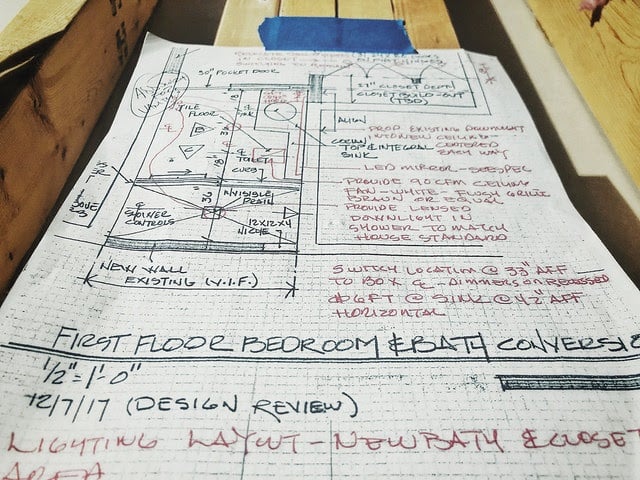 30" POCKET DOOR
TILE
FLOOR
27" CLOSET DEPTH
CLOSET BUILD-OUT
(TBD)
ALIGN
DROP EXISTING DOWNLIGHT
INTO NEW CEILING
CENTERED
EACH WAY
TOP & INTEGRAL
SINK
LED MIRROR - SEE SPEC
PROVIDE 90 CFM CEILING
FAN - WHITE - FLUSH GRILLE
BROAN OR EQUAL
PROVIDE LENSED
DOWNLIGHT IN
SHOWER TO MATCH
HOUSE STANDARD
TOILET
CURB
INVISIBLE
DRAIN
SHOWER
CONTROLS
12X12X4
NICHE
NEW WALL
EXISTING (V.I.F.)
SWITCH LOCATION @ 33" AFF
TO BOX - DIMMERS ON RECESSED
HORIZONTAL
FIRST FLOOR BEDROOM & BATH CONVERSI
1/2" = 1'-0"
12/7/17 (DESIGN REVIEW)
LIGHTING LAYOUT - NEW BATH & CLOSET
AREA